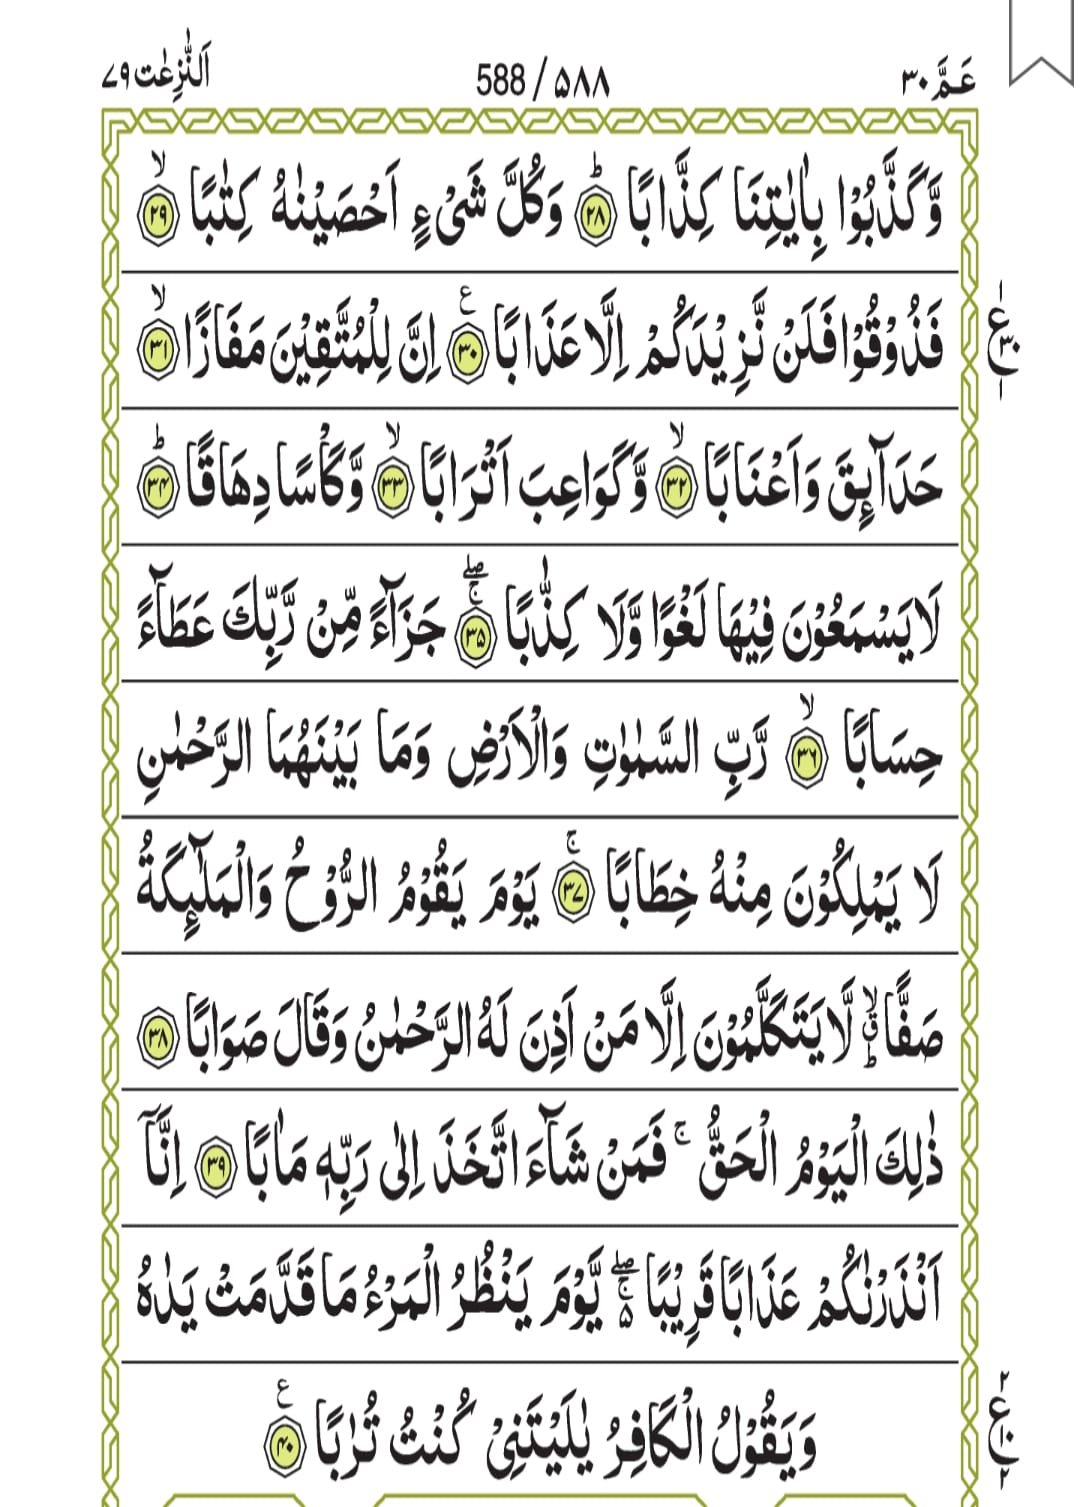 اَلنّٰزِعٰت ۷۹ 588 / ۵۸۸ عَمَّ ۳۰
وَّكَذَّبُوْا بِاٰيٰتِنَا كِذَّابًا ؕ‏ ﴿۲۸﴾ وَكُلَّ شَىْءٍ اَحْصَيْنٰهُ كِتٰبًا ۙ‏ ﴿۲۹﴾
فَذُوْقُوْا فَلَنْ نَّزِيْدَكُمْ اِلَّا عَذَابًا ع ﴿۳۰﴾ اِنَّ لِلْمُتَّقِيْنَ مَفَازًا ۙ‏ ﴿۳۱﴾
ع ۱ ۳۰ ۱
حَدَآئِقَ وَاَعْنَابًا ۙ‏ ﴿۳۲﴾ وَّكَوَاعِبَ اَتْرَابًا ۙ‏ ﴿۳۳﴾ وَّكَاْسًا دِهَاقًا ؕ‏ ﴿۳۴﴾
لَا يَسْمَعُوْنَ فِيْهَا لَغْوًا وَّلَا كِذّٰبًا ۚۖ ﴿۳۵﴾ جَزَآءً مِّنْ رَّبِّكَ عَطَآءً
حِسَابًا ۙ‏ ﴿۳۶﴾ رَّبِّ السَّمٰوٰتِ وَالْاَرْضِ وَمَا بَيْنَهُمَا الرَّحْمٰنِ
لَا يَمْلِكُوْنَ مِنْهُ خِطَابًا ۚ‏ ﴿۳۷﴾ يَوْمَ يَقُوْمُ الرُّوْحُ وَالْمَلٰٓئِكَةُ
صَفًّا ۙۗؕ لَّا يَتَكَلَّمُوْنَ اِلَّا مَنْ اَذِنَ لَهُ الرَّحْمٰنُ وَقَالَ صَوَابًا ﴿۳۸﴾
ذٰلِكَ الْيَوْمُ الْحَقُّ ۚ فَمَنْ شَآءَ اتَّخَذَ اِلٰى رَبِّهٖ مَاٰبًا ﴿۳۹﴾ اِنَّاۤ
اَنْذَرْنٰكُمْ عَذَابًا قَرِيْبًا ۚۖ ۵ يَّوْمَ يَنْظُرُ الْمَرْءُ مَا قَدَّمَتْ يَدٰهُ
وَيَقُوْلُ الْكَافِرُ يٰلَيْتَنِىْ كُنْتُ تُرٰبًا ع ﴿۴۰﴾
ع ۲ ۱۰ ۲